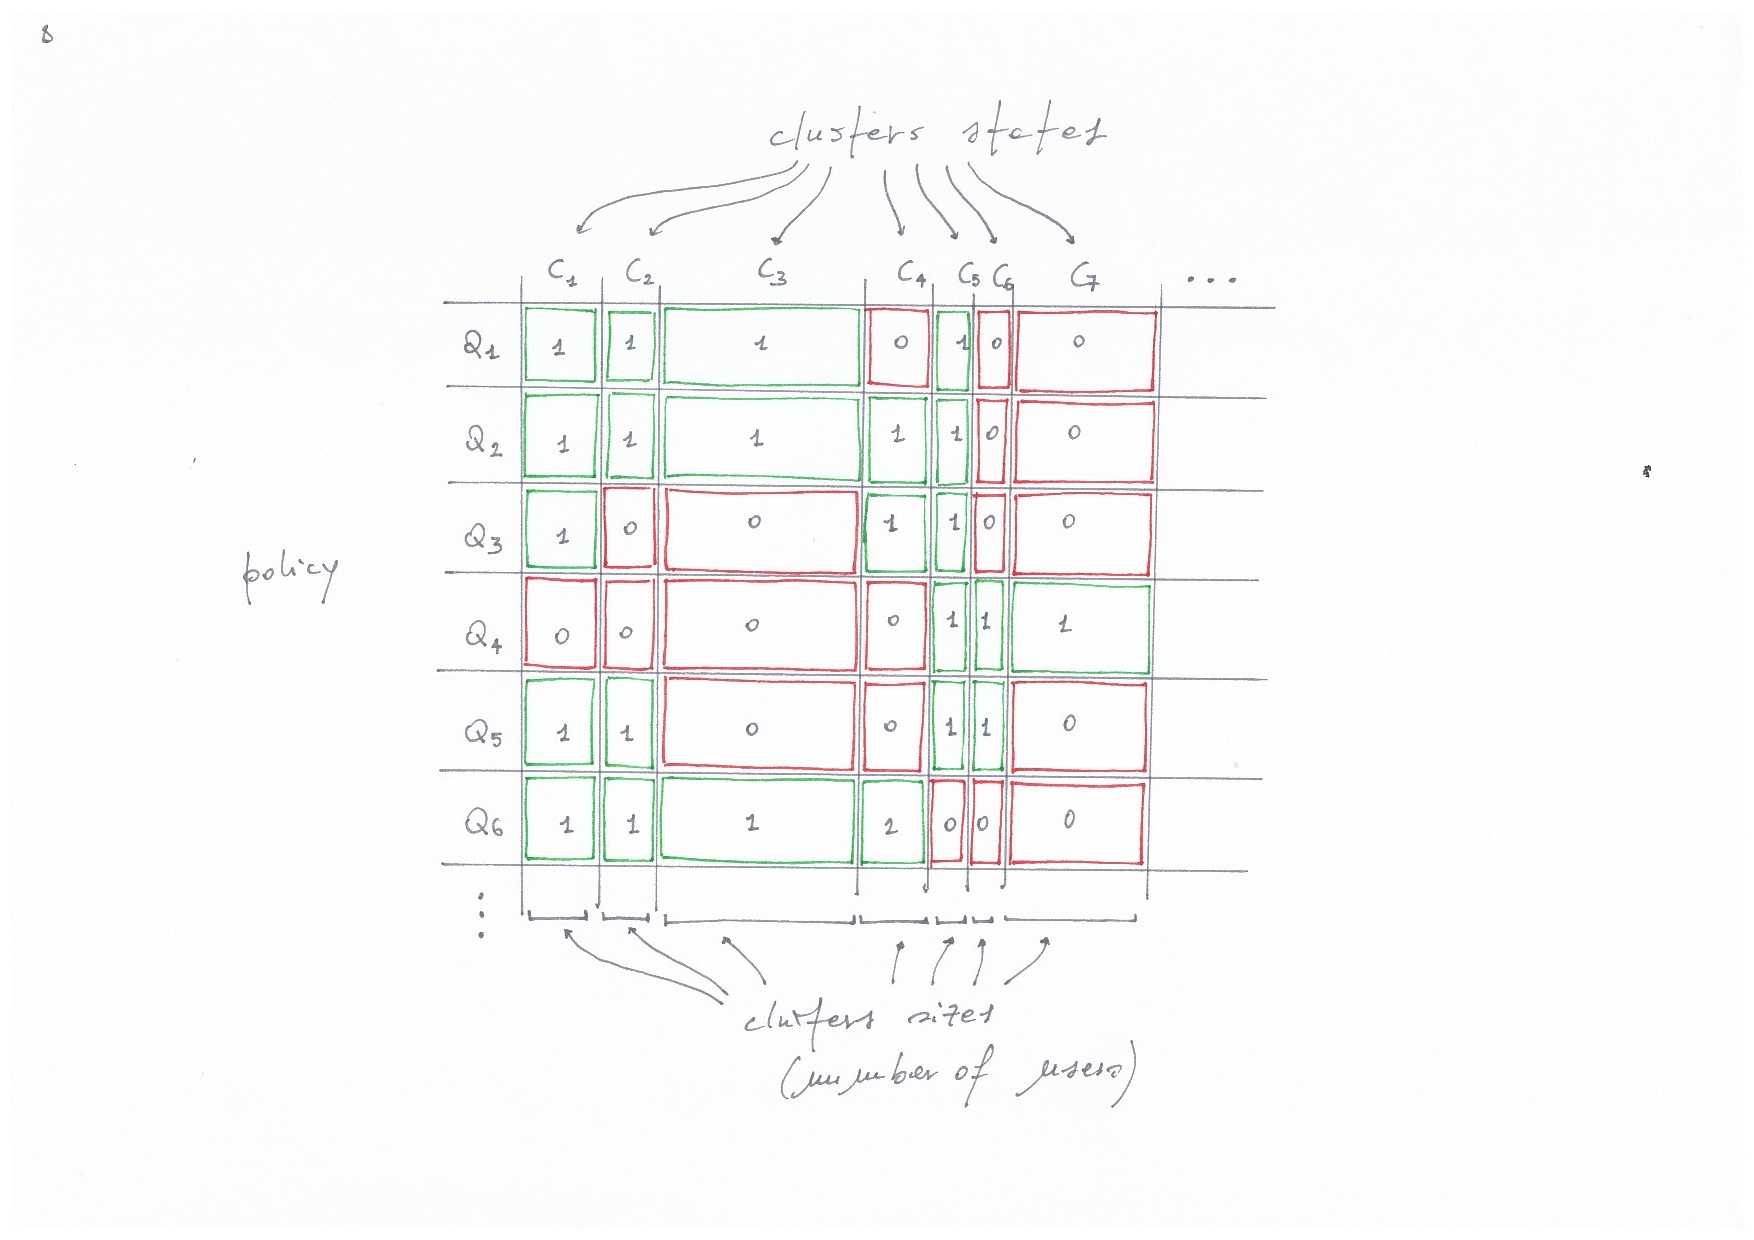 8
clusters states
C1 C2 C3 C4 C5 C6 C7 ...
Q1 1 1 1 0 1 0 0
Q2 1 1 1 1 1 0 0
Q3 1 0 0 1 1 0 0
policy
Q4 0 0 0 0 1 1 1
Q5 1 1 0 0 1 1 0
Q6 1 1 1 1 0 0 0
clusters sizes
(number of users)